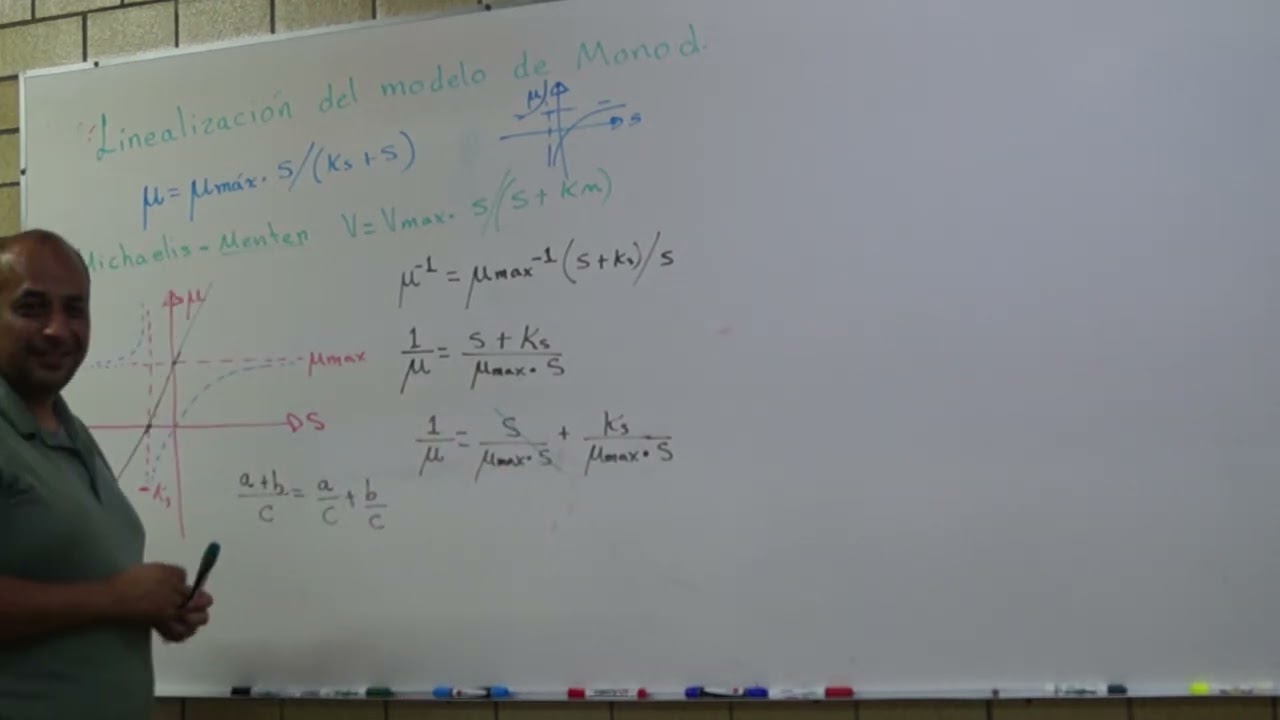 Linealización del modelo de Monod.
μ
s
μ = μmáx. s/(Ks + s)
Michaelis - Menten V = Vmax. s/(s + Km)
μ⁻¹ = μmax⁻¹ (s + ks)/s
μ
μmax
s
-Ks
1/μ = (s + Ks)/(μmax • s)
1/μ = s/(μmax • s) + ks/(μmax • s)
(a+b)/c = a/c + b/c